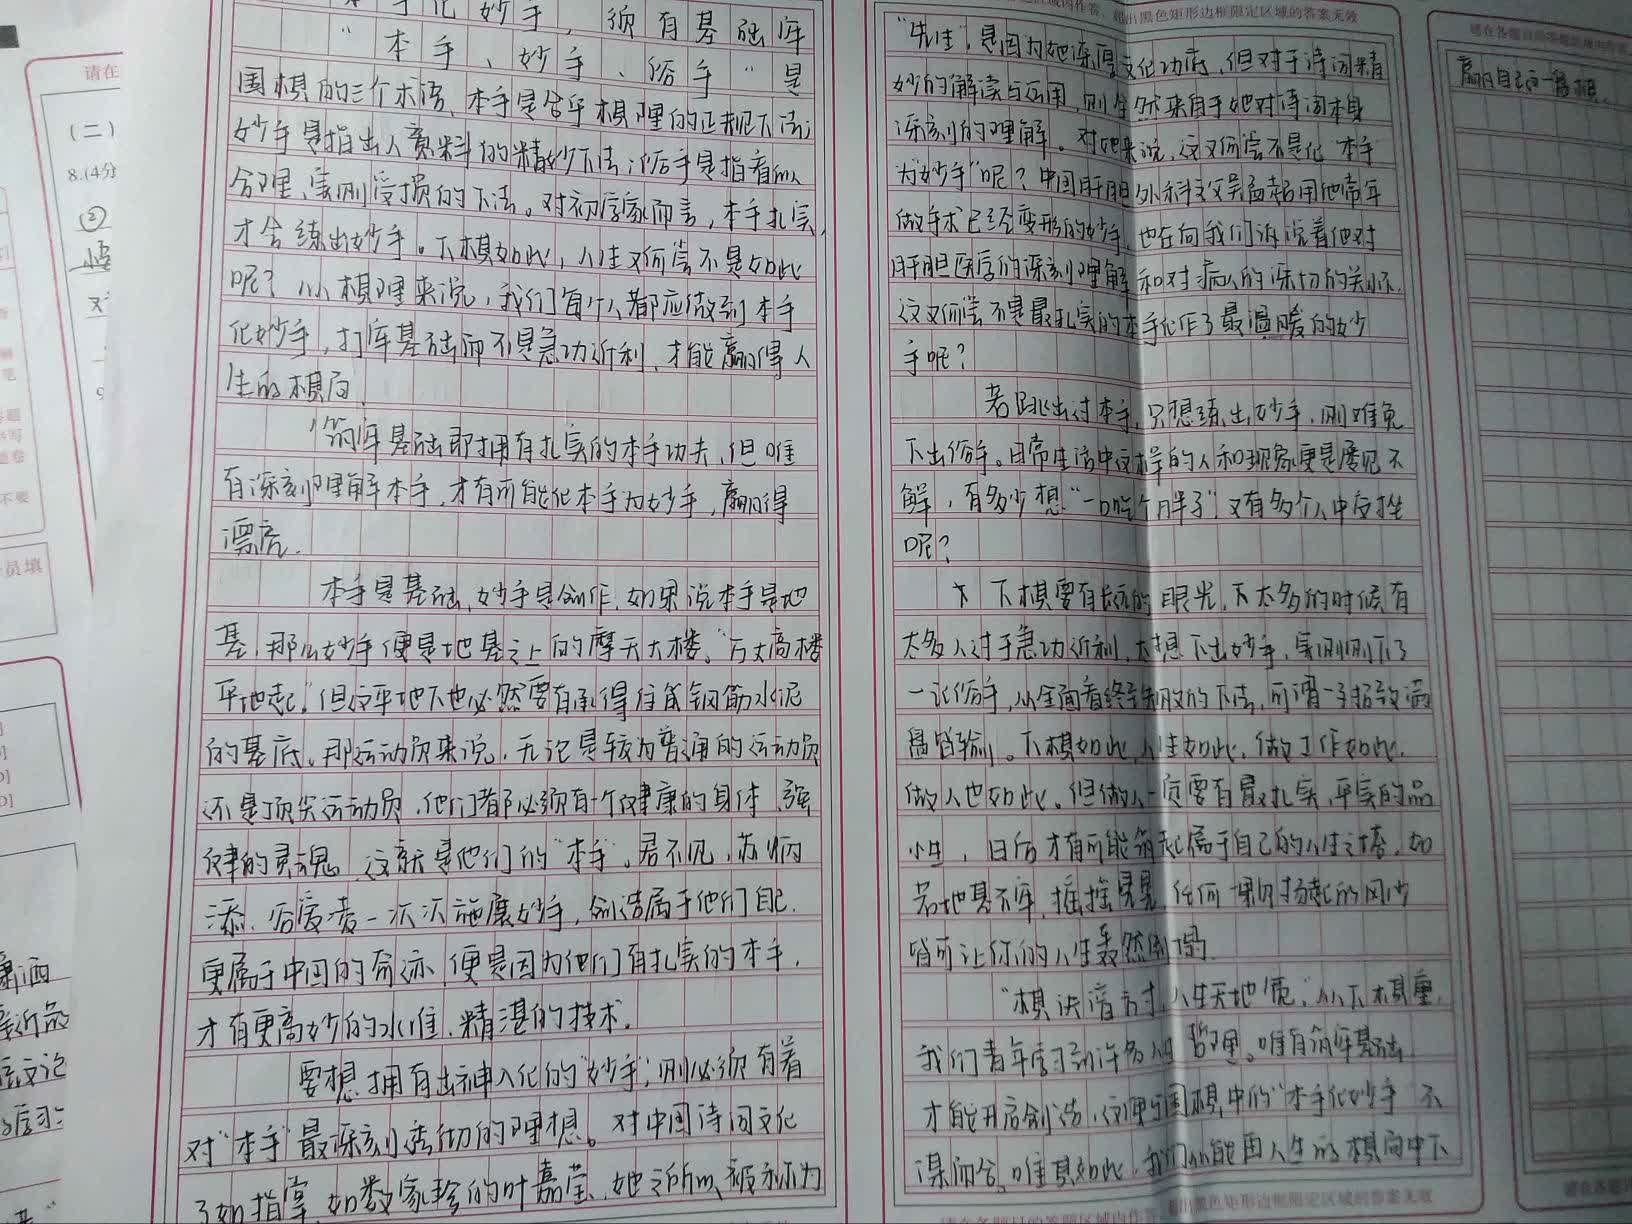 本手化妙手，须有基础牢
“本手、妙手、俗手”是
围棋的三个术语，本手是合乎棋理的正规下法；
妙手是指出人意料的精妙下法；俗手是指看似
合理，实则受损的下法。对初学家而言，本手扎实，
才会练出妙手。下棋如此，人生又何尝不是如此
呢？从棋理来说，我们每个人都应做到本手
化妙手，打牢基础而不是急功近利，才能赢得人
生的棋局。
筑牢基础即拥有扎实的本手功夫，但唯
有深刻理解本手，才有可能化本手为妙手，赢得
漂亮。
本手是基础，妙手是创作，如果说本手是地
基，那么妙手便是地基之上的摩天大楼。“万丈高楼
平地起。”但这平地下也必然要有承得住的钢筋水泥
的基底。那运动员来说，无论是较为普通的运动员
还是顶尖运动员，他们都必须有一个健康的身体，强
健的灵魂，这就是他们的“本手”。君不见，苏炳
添、谷爱凌一次次施展妙手，创造属于他们自己，
更属于中国的奇迹，便是因为他们有扎实的本手，
才有更高妙的水准，精湛的技术。
要想拥有出神入化的“妙手”，则必须有着
对“本手”最深刻透彻的理想。对中国诗词文化
了如指掌，如数家珍的叶嘉莹，她之所以被称为
“先生”，是因为她深厚文化功底，但对于诗词精
妙的解读与运用，则全然来自于她对诗词本身
深刻的理解。对她来说，这又何尝不是化“本手”
为“妙手”呢？中国肝胆外科之父吴孟超用他常年
做手术已经变形的妙手，也在向我们诉说着他对
肝胆医学的深刻理解和对病人的深切的关怀，
这又何尝不是最扎实的本手化作了最温暖的妙
手呢？
若跳出过本手，只想练出妙手，则难免
下出俗手。日常生活中这样的人和现象更是屡见不
鲜，有多少想“一口吃个胖子”，又有多个人中反挫
呢？
下棋要有长远的眼光，下太多的时候有
太多人过于急功近利，太想下出妙手，实则则下了
一记俗手，从全面看终至失败的下法，可谓一手招致满
盘皆输。下棋如此，人生如此，做工作如此，
做人也如此。但做人一质要有最扎实，平实的品
性，日后才有可能筑起属于自己的人生之塔，如
若地基不牢，摇摇晃晃，任何一棵扬起的风沙
皆可让你的人生轰然倒塌。
“棋诀谙方寸，人生天地宽。”从下棋里，
我们青年学习到许多的哲理。唯有筑牢基础
才能开启创造，这便与围棋中的“本手化妙手”不
谋而合。唯其如此，我们从能由人生的棋局中下
赢自己的一盘棋。
请在
（二）
8.(4分
②
员填